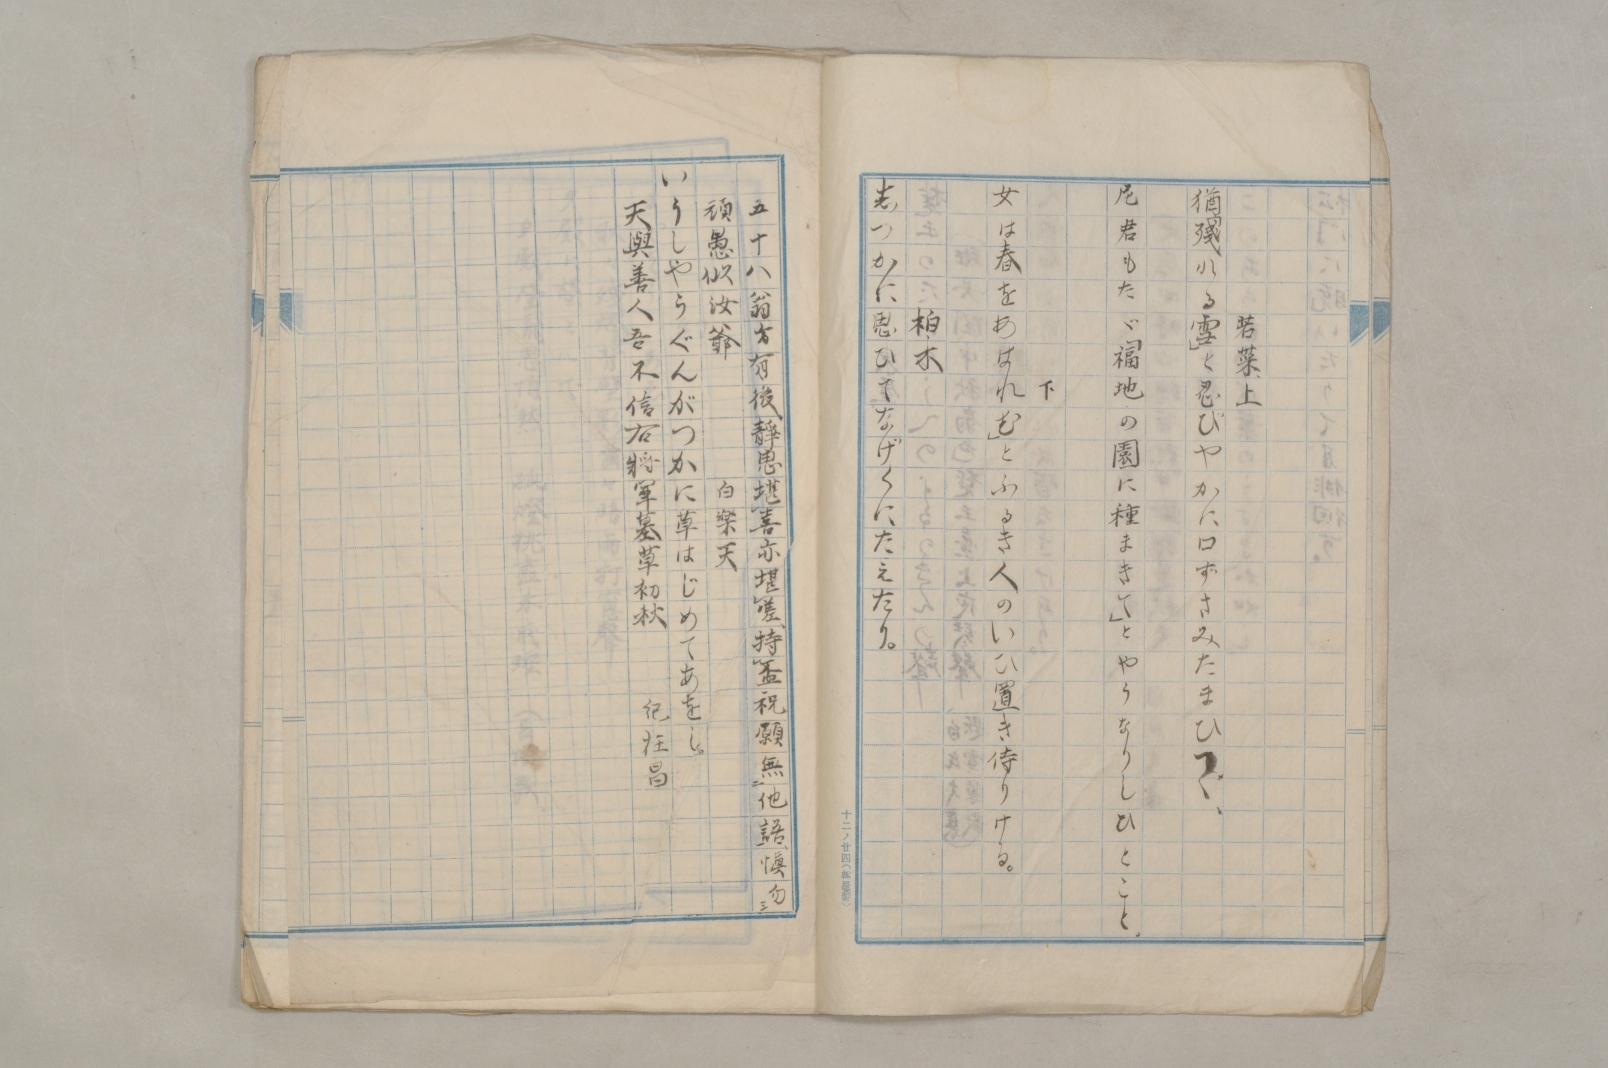 若菜、上
猶殘れる雪」と忍びやかに口ずさみたまひつゞ、
尼君もたゞ「福地の園に種まきて」とやうなりしひとこと。
下
女は春をあはれむ」とふるき人のいひ置き侍りける。
柏木
志つかに思ひてなげくにたえたり。
十二ノ廿四
五十八翁方有後靜思堪喜亦堪嗟持盃祝願無二他語愼勿三
頑愚似汝爺
白樂天
いうしやうぐんがつかに草はじめてあをし。
天與善人吾不信右將軍墓草初秋
紀在昌